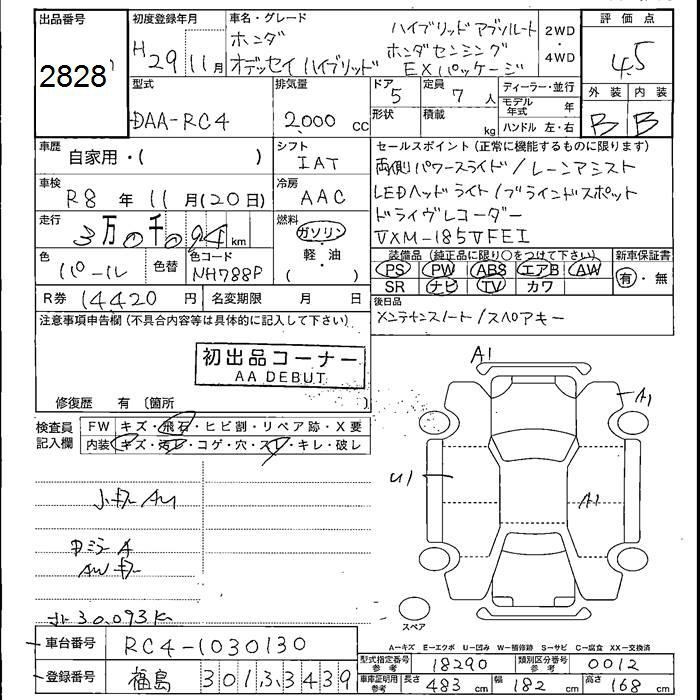 出品番号
2828
初度登録年月
H29年11月
車名・グレード
ホンダ
オデッセイ ハイブリッド
ハイブリッド アブソルート
ホンダセンシング
EXパッケージ
2WD
・
4WD
評価点
4.5
外装 内装
B B
型式
DAA-RC4
排気量
2,000 cc
ドア
5
形状
定員
7 人
積載
kg
ディーラー・並行
モデル年式 年
ハンドル 左・右
車歴
自家用・( )
シフト
IAT
セールスポイント (正常に機能するものに限ります)
両側パワースライド/レーンアシスト
LEDヘッドライト/ブラインドスポット
ドライヴレコーダー
VXM-185VFEI
車検
R8 年 11 月(20日)
冷房
AAC
走行
3万0千094 km
燃料
ガソリン
・
軽・油
( )
色
パール
色替
色コード
NH788P
装備品 (純正品に限り○をつけて下さい)
PS PW ABS エアB AW
SR ナビ TV カワ
新車保証書
有・無
R券 14420 円
名変期限 月 日
後日品
メンテナンスノート/スペアキー
注意事項申告欄 (不具合内容等は具体的に記入して下さい)
初出品コーナー
AA DEBUT
修復歴 有 〔箇所 〕
検査員
記入欄
FW キズ・飛石・ヒビ割・リペア跡・X要
内装 キズ・汚レ・コゲ・穴・スレ・キレ・破レ
A1
A1
U1
A1
スペア
30,093K
車台番号
RC4-1030130
登録番号
福島 301 3 3439
A-キズ E-エクボ U-凹み W-補修跡 S-サビ C-腐食 XX-交換済
型式指定番号
参考
18290
類別区分番号
参考
0012
車庫証明用
参考
長さ 483 cm 幅 182 cm 高さ 168 cm